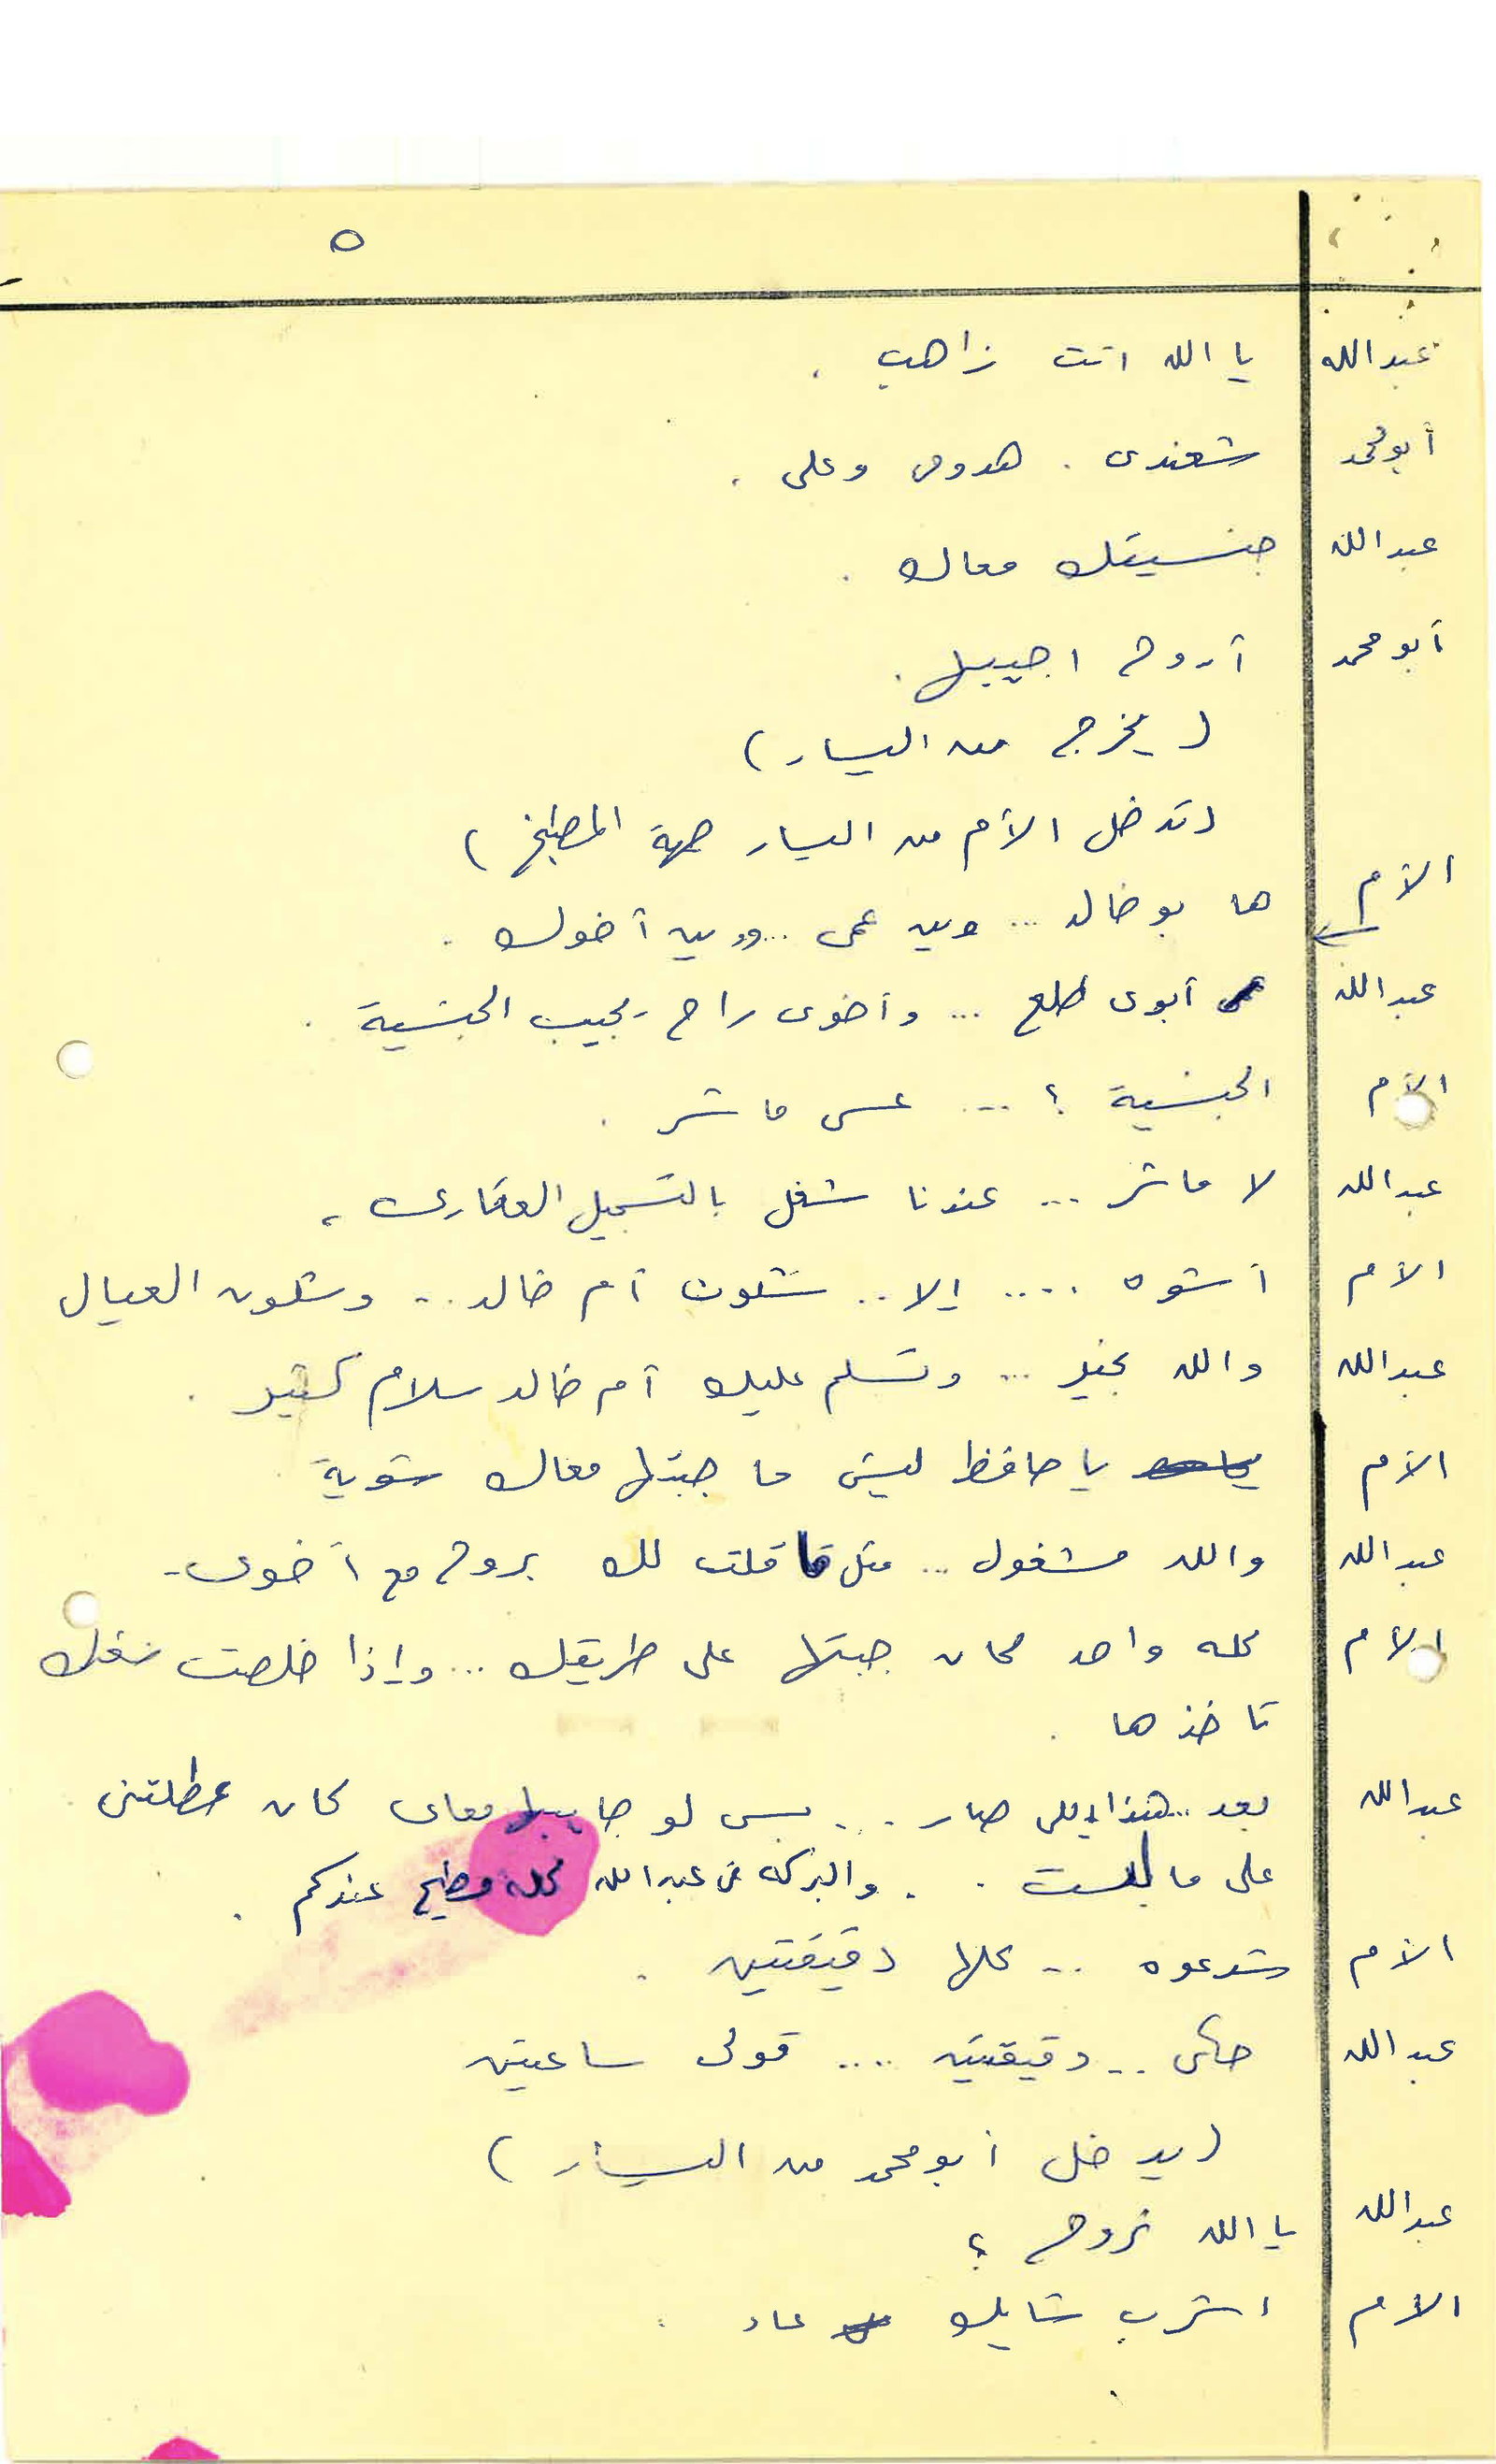 ٥
عبدالله يا الله انت زاهب .
أبو محمد شعندى . هدومى وعلى .
عبدالله جنسيتك معاك .
أبو محمد أروح اجيبها .
( يخرج من اليسار )
( تدخل الأم من اليسار جهة المطبخ )
الأم ها بو خالد ... وين عمى ... ووين أخوك .
عبدالله أبوى طلع ... وأخوى راح يجيب الجنسية .
الأم الجنسية ؟ ... عسى ما شر .
عبدالله لا ما شر ... عندنا شغل بالتسجيل العقارى .
الأم أشوه .... إلا .. شلون أم خالد .. وشلون العيال
عبدالله والله بخير ... وتسلم عليك أم خالد سلام كثير .
الأم يا حافظ ليش ما جبتها معاك شوية
عبدالله والله مشغول .. مثل ما قلت لك بروح مع أخوى .
الأم كله واحد كان جبتها على طريقك ... وإذا خلصت شغلك
تاخذها .
عبدالله بعد .. هذا اللى صار ... بس لو جايبها معاى كان عطلتنى
على ما لبست . . والبركة فى عبدالله كله مطيح عندكم .
الأم شدعوه .. كلها دقيقتين .
عبدالله حكى .. دقيقتين .... قولى ساعتين
( يدخل أبو محمد من اليسار )
عبدالله يا الله نروح ؟
الأم اشرب شايك عاد .